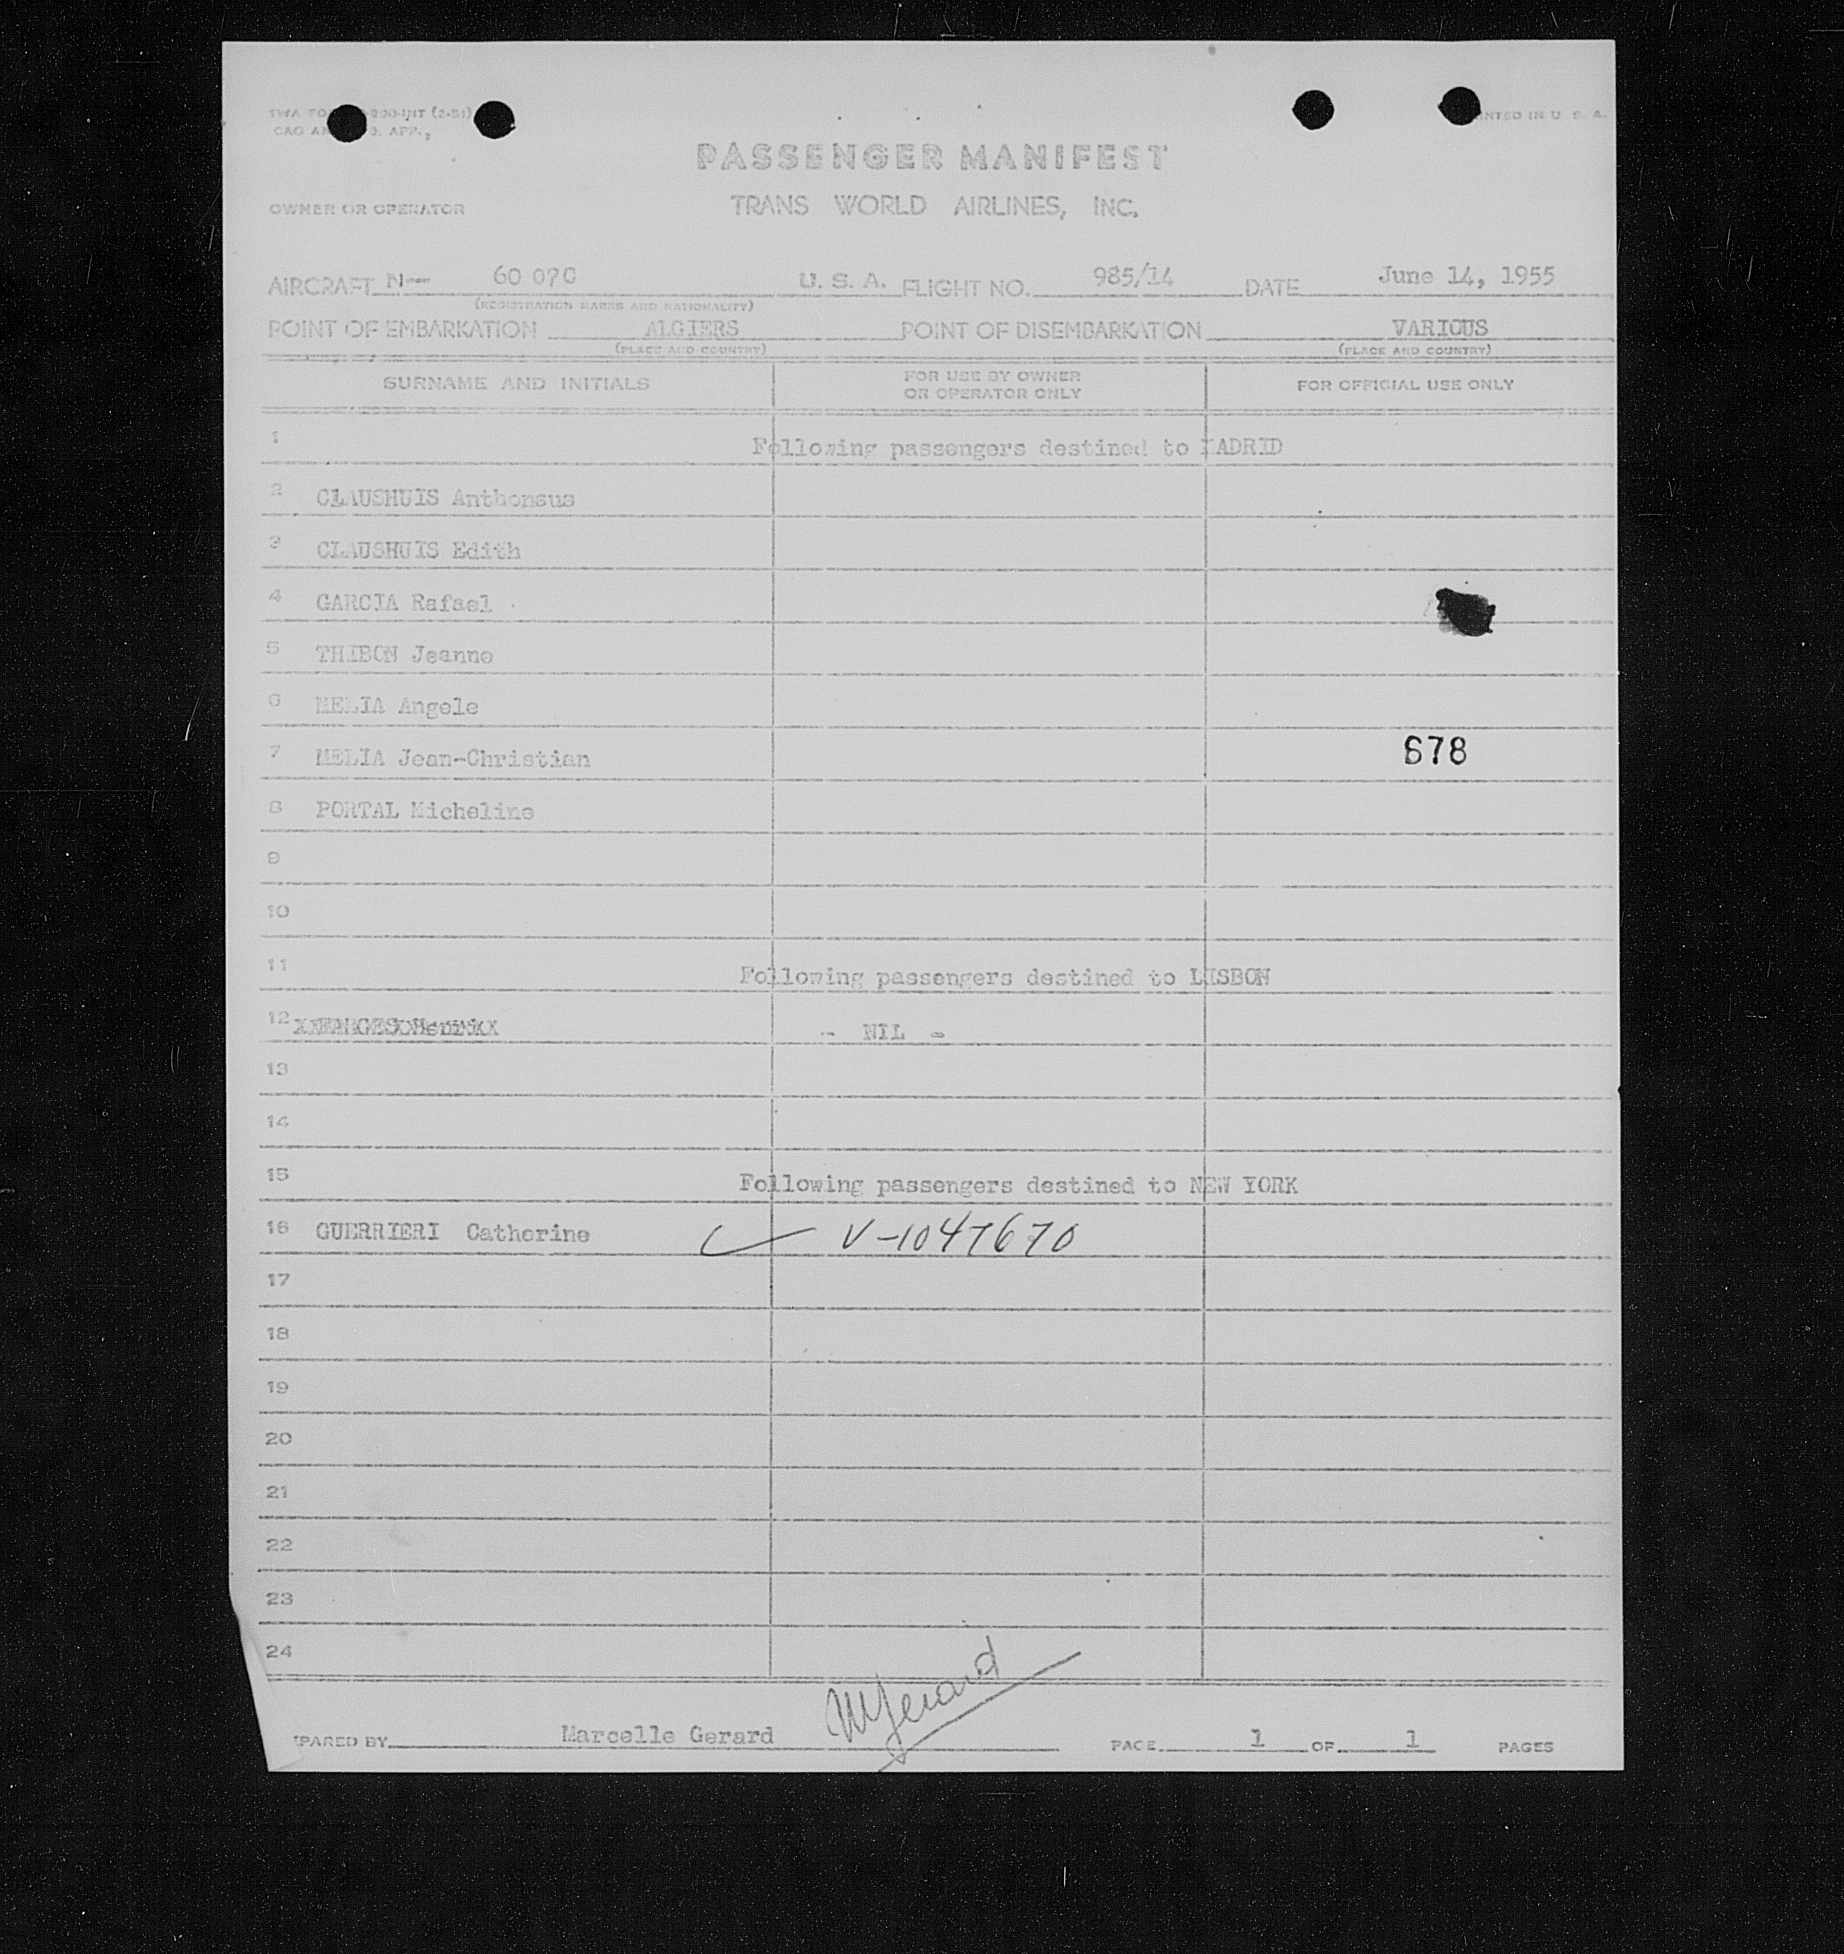 TWA FO -200-INT (2-51)
CAO AN . APP.,
PRINTED IN U. S. A.
PASSENGER MANIFEST
OWNER OR OPERATOR TRANS WORLD AIRLINES, INC.
AIRCRAFT N— 60 070 U. S. A. FLIGHT NO. 985/14 DATE June 14, 1955
(REGISTRATION MARKS AND NATIONALITY)
POINT OF EMBARKATION ALGIERS POINT OF DISEMBARKATION VARIOUS
(PLACE AND COUNTRY) (PLACE AND COUNTRY)
SURNAME AND INITIALS FOR USE BY OWNER OR OPERATOR ONLY FOR OFFICIAL USE ONLY
1 Following passengers destined to MADRID
2 CLAUSHUIS Anthonsus
3 CLAUSHUIS Edith
4 GARCIA Rafael
5 THIBON Jeanne
6 MELIA Angele
7 MELIA Jean-Christian 678
8 PORTAL Micheline
9
10
11 Following passengers destined to LISBON
12 - NIL -
13
14
15 Following passengers destined to NEW YORK
16 GUERRIERI Catherine V-1047670
17
18
19
20
21
22
23
24
PARED BY Marcelle Gerard MGerard PAGE 1 OF 1 PAGES